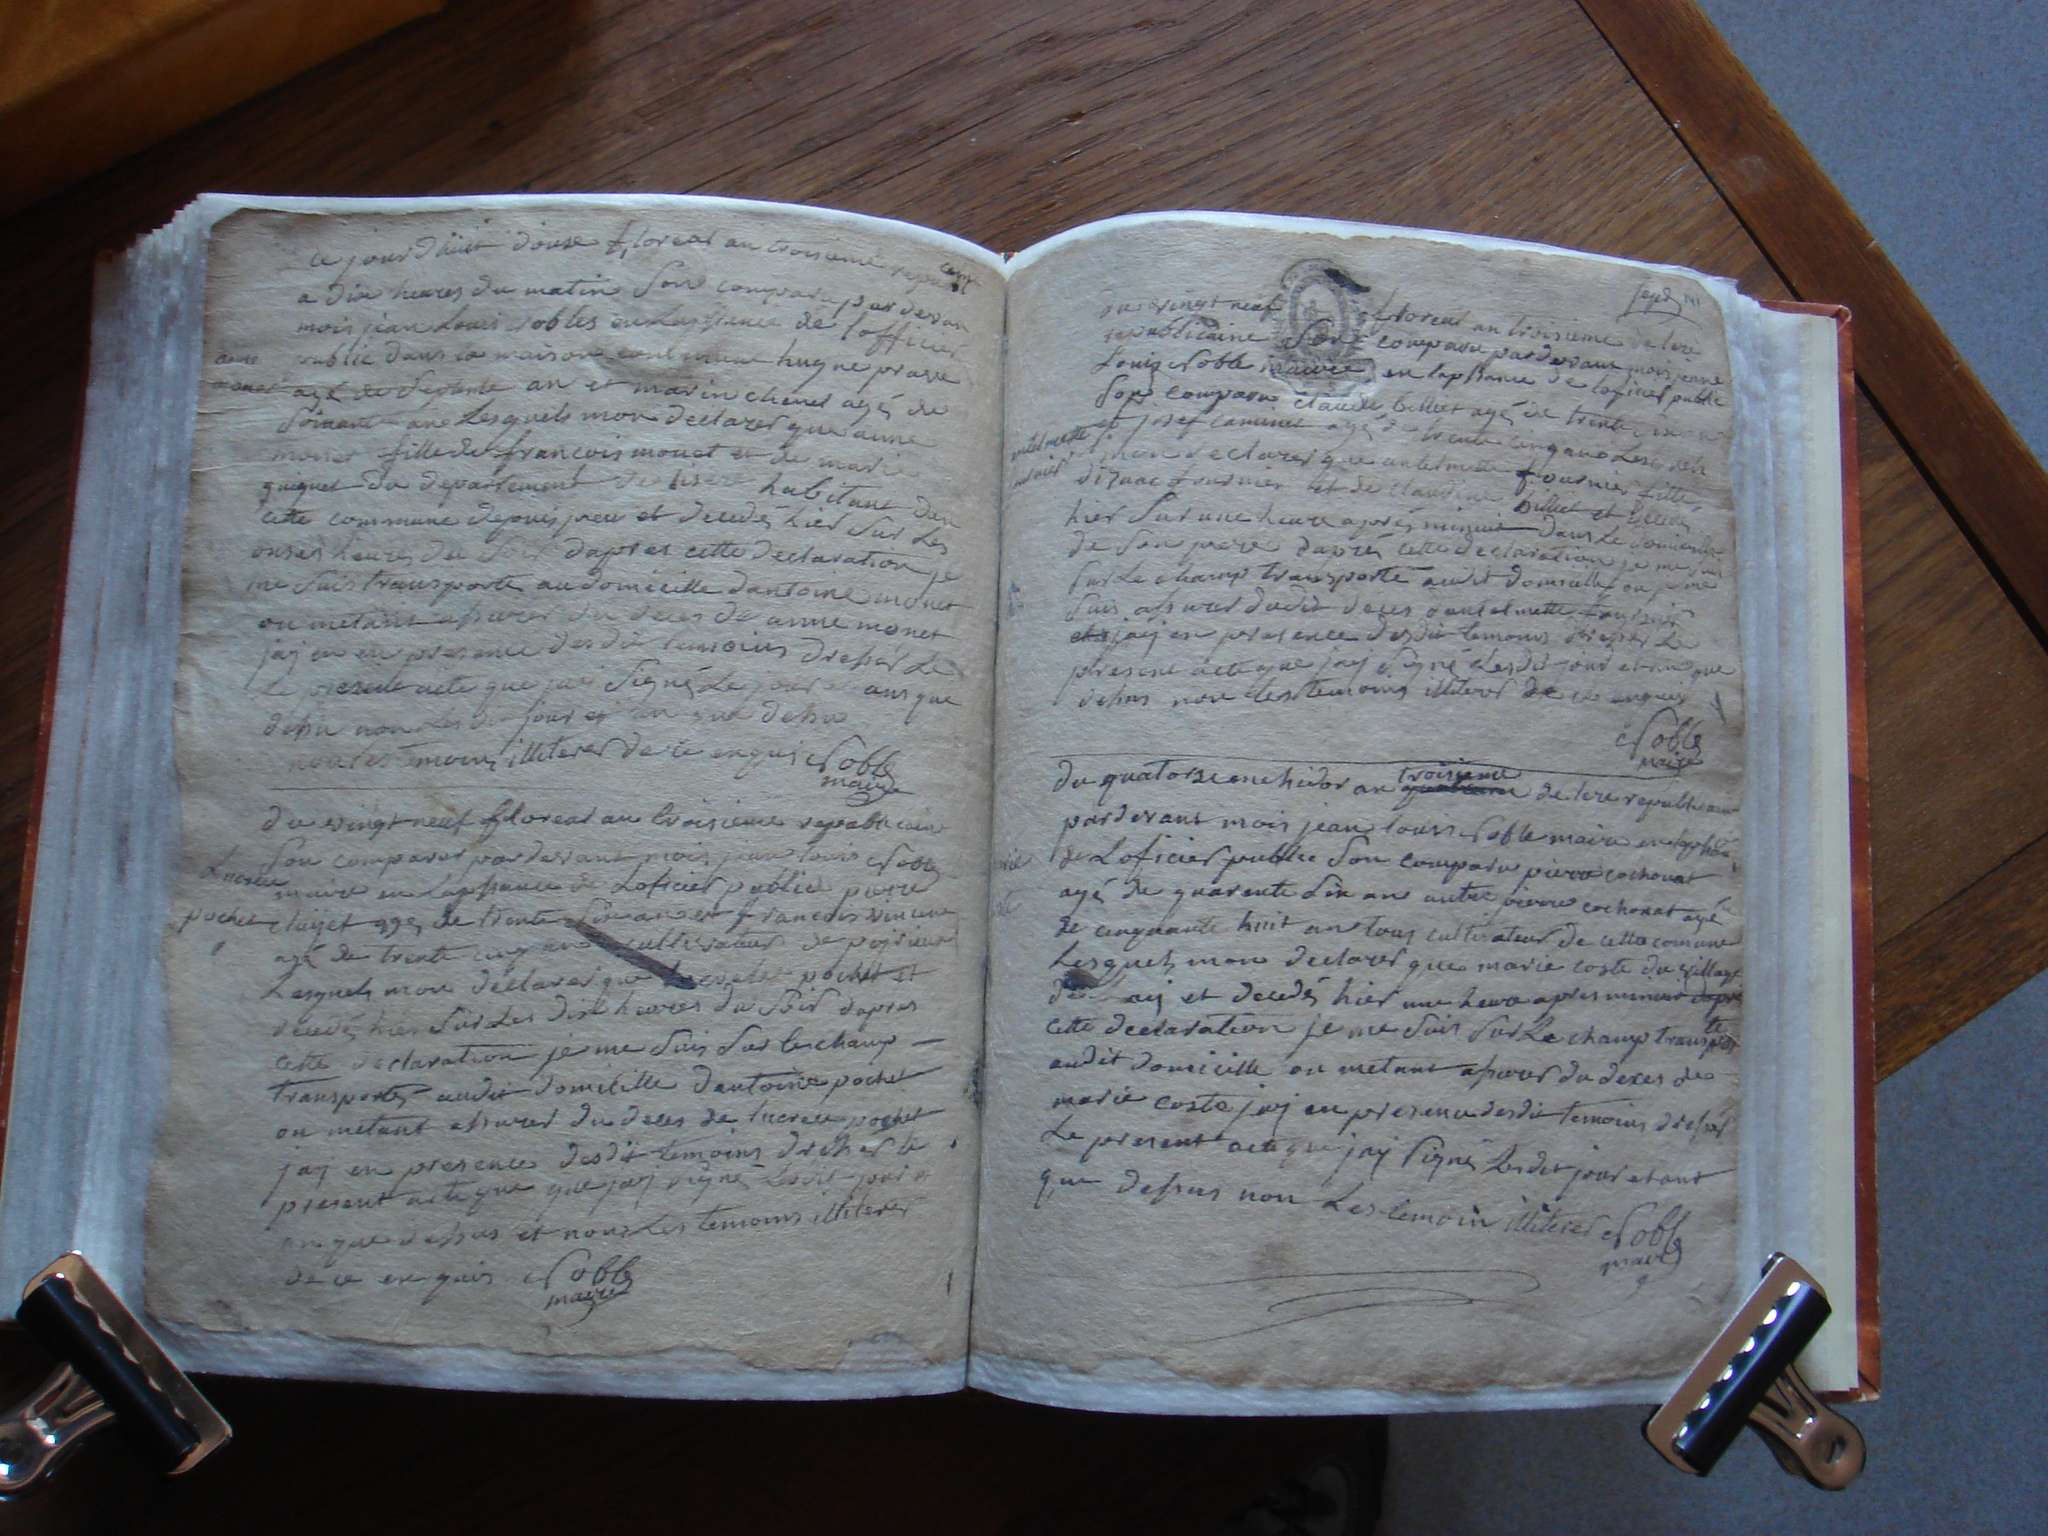 ce jourd'huit douse floreal an troisieme
a dix heures du matin Son comparu par devan
mois jean Louis Nobles en Lapssence de lofficier
public dans la maison commune hugne
agé de Septente an et marin chenet agés de
Soixante ans Lesquels mon declarer que anne
monet fille de francois monet et de marie
guiguet du departement de lisere habitant den
cette commune depuis peu et decedés hier Sur Les
onses heures du Soir dapres cette declaration je
me Suis transporté au domicille dantoine monet
ou metant assurer du deces de anne monet
jaj en presence desdit temoins dresser Le
Le present acte que jai Signé Le jour ans que
dessu non Les dit jour et an que dessu
non les temoins illiterer de ce enquis Noble
maire
Du vingt neuf floreal an troisieme republicaine
Son comparer pardevant mois jean louis Noble
Lucresse
maire en Lapssance de Loficier public pierre
pochet
agés de trente Six an et francois vincent
agé de trente cinq ans cultivateur de
Lesquels mon declarer que pochet et
decedés hier Sur Les dix heures du Soir dapres
cette declaration je me Suis Sur le champ
transportés audit domicille dantoine pochet
ou metant assurer du deces de lucresse pochet
jaj en presence desdit temoins dresser le
present acte que que jaj signé Ledit jour et
an que dessus et non Les temoins illiterer
de ce enquis Noble
maire
141
du vingt neuf floreal an troisieme de lere
republicaine Son comparu pardevant mois jeane
Louis Noble maire en lapssance de loficier public
Son comparu claude billiet agé de trente
et josef caminet agé de trente cinq ans Lesquels
antelmette
fournier
mon declarer que antelmette fournier fille
disaac fournier et de claudine billiet et decedé
hier Sur une heure aprés minuit dans Le domicille
de Son pere daprés cette declaration je me Suis
Sur Le champ transporté audit domicille ou je me
Suis assurer dudit deces dantelmette fournier
jaj en presence desdit temoins dresser Le
present acte que jaj Signé Lesdit jour et an que
dessus non les temoins illiterer de ce enquis
Noble
maire
du quatorse mesidor an troisieme de lere republicaine
pardevant mois jean louis Noble maire en lapssance
de Loficier public Son comparu pierre cochonat
agé de quarente Six an autre pierre cochonat agé
de cinquante huit an tous cultivateur de cette comune
Lesquels mon declarer que marie coste du village
et decedés hier une heure apres minuit dapres
cette declaration je me Suis Sur Le champ transporté
audit domicille ou metant assurer du deces de
marie coste jaj en presence desdit temoins dresser
Le present acte que jaj Signé Lesdit jour et ant
que dessus non Les temoin illiterer Noble
maire